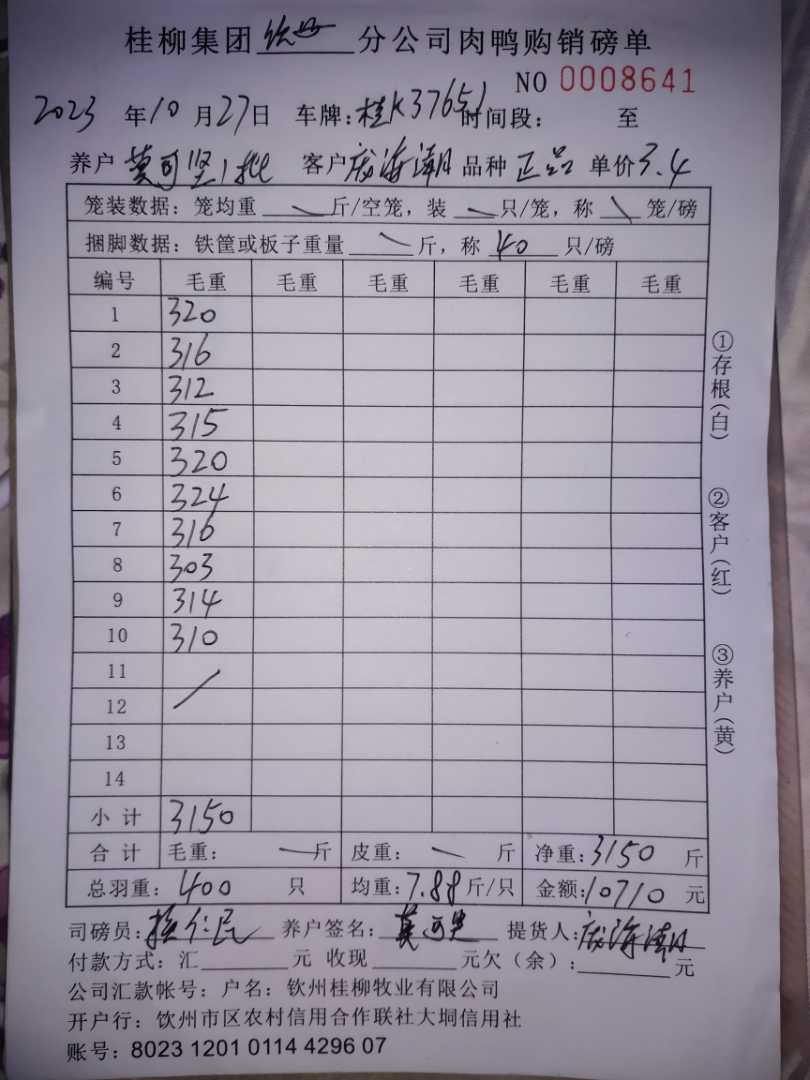 桂柳集团钦州分公司肉鸭购销磅单
NO 0008641
2023年10月27日 车牌:桂K37651 时间段: 至
养户 莫可坚1批 客户 庞海潮 品种 正品 单价3.4
笼装数据:笼均重 斤/空笼,装 只/笼,称 笼/磅
捆脚数据:铁筐或板子重量 斤,称 40 只/磅
编号 毛重 毛重 毛重 毛重 毛重 毛重
1 320
2 316
3 312
4 315
5 320
6 324
7 316
8 303
9 314
10 310
11
12
13
14
小计 3150
合计 毛重: 斤 皮重: 斤 净重:3150 斤
总羽重:400 只 均重:7.88斤/只 金额:10710 元
司磅员: 养户签名:莫可坚 提货人:庞海潮
付款方式:汇 元 收现 元欠(余): 元
公司汇款帐号:户名:钦州桂柳牧业有限公司
开户行:钦州市区农村信用合作联社大垌信用社
账号:8023 1201 0114 4296 07
①存根(白)
②客户(红)
③养户(黄)